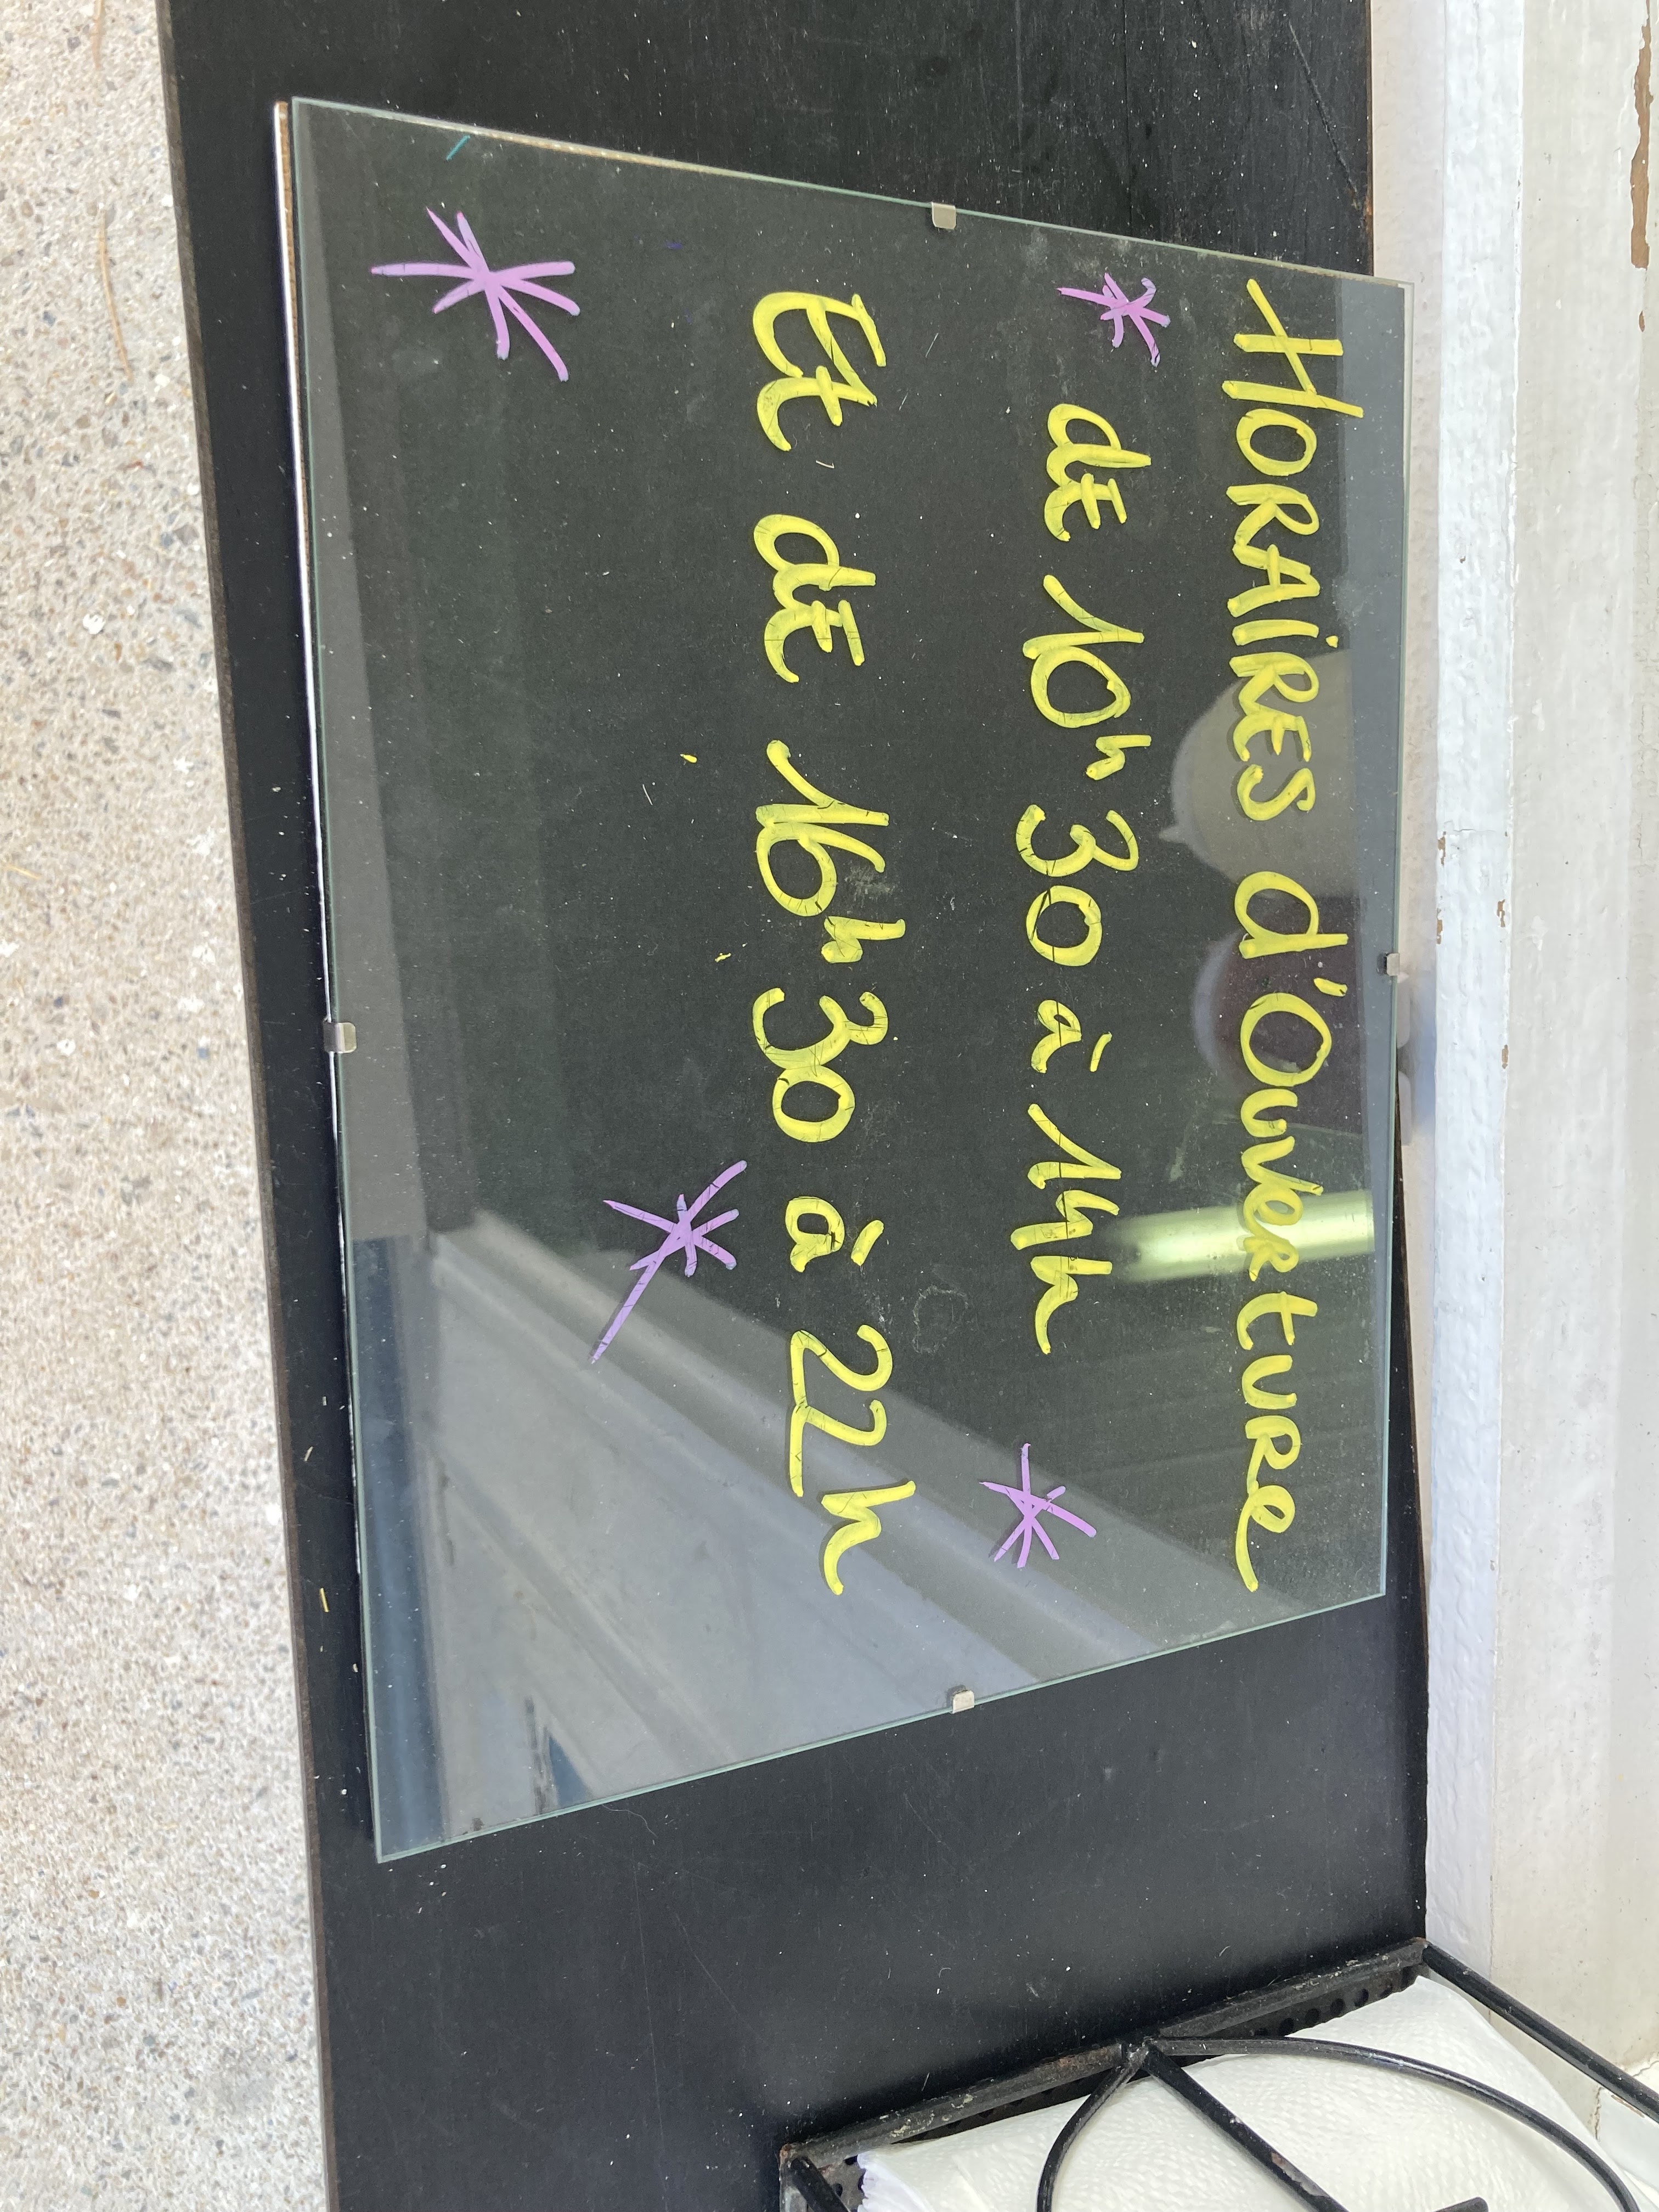 HORAIRES d'OuveRtuRe
dE 10h30 à 14h
Et dE 16h30 à 22h